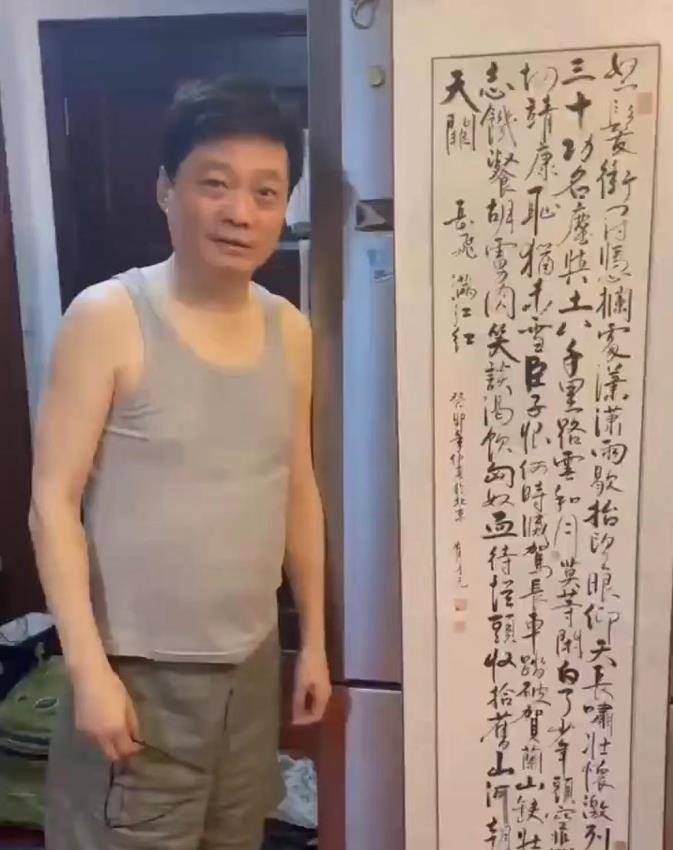 怒髮衝冠憑欄處瀟瀟雨歇抬望眼仰天長嘯壯懷激烈
三十功名塵與土八千里路雲和月莫等閑白了少年頭空悲
切靖康恥猶未雪臣子恨何時滅駕長車踏破賀蘭山缺壯
志饑餐胡虜肉笑談渴飲匈奴血待從頭收拾舊山河朝
天闕
岳飛 滿江红
癸卯年仲夏於北京